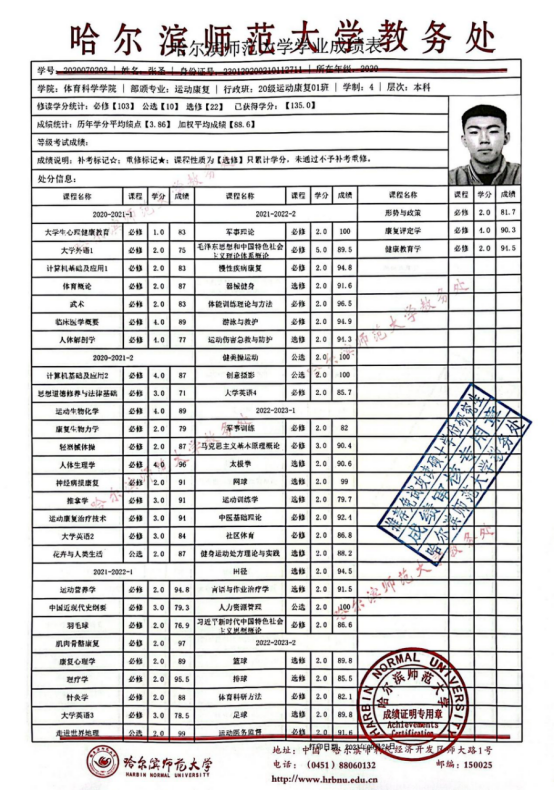 哈尔滨师范大学教务处
哈尔滨师范大学学业成绩表
学号: 2020070202 | 姓名: 张圣 | 身份证号: | 所在年级: 2020
学院: 体育科学学院 | 部颁专业: 运动康复 | 行政班: 20级运动康复01班 | 学制: 4 | 层次: 本科
修读学分统计: 必修【103】 公选【10】 选修【22】 已获得学分:【135.0】
成绩统计: 历年学分平均绩点【3.86】 加权平均成绩【88.6】
等级考试成绩:
成绩说明: 补考标记☆; 重修标记★; 课程性质为【选修】只累计学分, 未通过不予补考重修。
处分信息:
课程名称 课程 学分 成绩 课程名称 课程 学分 成绩 课程名称 课程 学分 成绩
2020-2021-1
大学生心理健康教育 必修 1.0 83
大学外语1 必修 2.0 75
计算机基础及应用1 必修 2.0 83
体育概论 必修 2.0 87
武术 必修 2.0 83
临床医学概要 必修 4.0 89
人体解剖学 必修 4.0 77
2020-2021-2
计算机基础及应用2 必修 4.0 87
思想道德修养与法律基础 必修 3.0 71
运动生物化学 必修 4.0 89
康复生物力学 必修 2.0 79
轻器械体操 必修 2.0 87
人体生理学 必修 4.0 96
神经病损康复 必修 2.0 91
推拿学 必修 3.0 91
运动康复治疗技术 必修 3.0 91
大学英语2 必修 3.0 84
花卉与人类生活 公选 2.0 87
2021-2022-1
运动营养学 必修 2.0 94.8
中国近现代史纲要 必修 3.0 79.3
羽毛球 必修 2.0 76.9
肌肉骨骼康复 必修 2.0 97
康复心理学 必修 2.0 89
理疗学 必修 2.0 95.5
针灸学 必修 2.0 88
大学英语3 必修 3.0 78.5
走进世界地理 公选 2.0 99
2021-2022-2
军事理论 必修 2.0 100
毛泽东思想和中国特色社会主义理论体系概论 必修 5.0 89.5
慢性疾病康复 必修 2.0 94.8
器械健身 选修 2.0 91.6
体能训练理论与方法 必修 2.0 96.5
游泳与救护 必修 2.0 94.9
运动伤害急救与防护 选修 2.0 94.3
健美操运动 公选 2.0 100
创意摄影 公选 2.0 100
大学英语4 必修 2.0 85.7
2022-2023-1
军事训练 必修 2.0 82
马克思主义基本原理概论 必修 3.0 90.4
太极拳 选修 2.0 90.6
网球 选修 2.0 99
运动训练学 必修 2.0 79.7
中医基础理论 必修 2.0 92.4
社区体育 必修 2.0 86.8
健身运动处方理论与实践 选修 2.0 88.2
田径 选修 2.0 94.5
言语与作业治疗学 必修 2.0 91.5
人力资源管理 公选 2.0 100
习近平新时代中国特色社会主义思想概论 必修 2.0 86.6
2022-2023-2
篮球 选修 2.0 89.8
排球 选修 2.0 85.5
体育科研方法 必修 2.0 82.1
足球 选修 2.0 89.8
运动服务监督 选修 2.0 91.6
形势与政策 必修 2.0 81.7
康复评定学 必修 4.0 90.3
健康教育学 必修 2.0 94.5
哈尔滨师范大学教务处
推荐免试攻读硕士学位研究生
成绩审核专用章
哈尔滨师范大学教务处
HARBIN NORMAL UNIVERSITY
哈尔滨师范大学
成绩证明专用章
Achievements
Certification
哈尔滨师范大学
HARBIN NORMAL UNIVERSITY
地址: 中国·哈尔滨利民经济开发区师大路1号
电话: (0451) 88060132 邮编: 150025
http://www.hrbnu.edu.cn